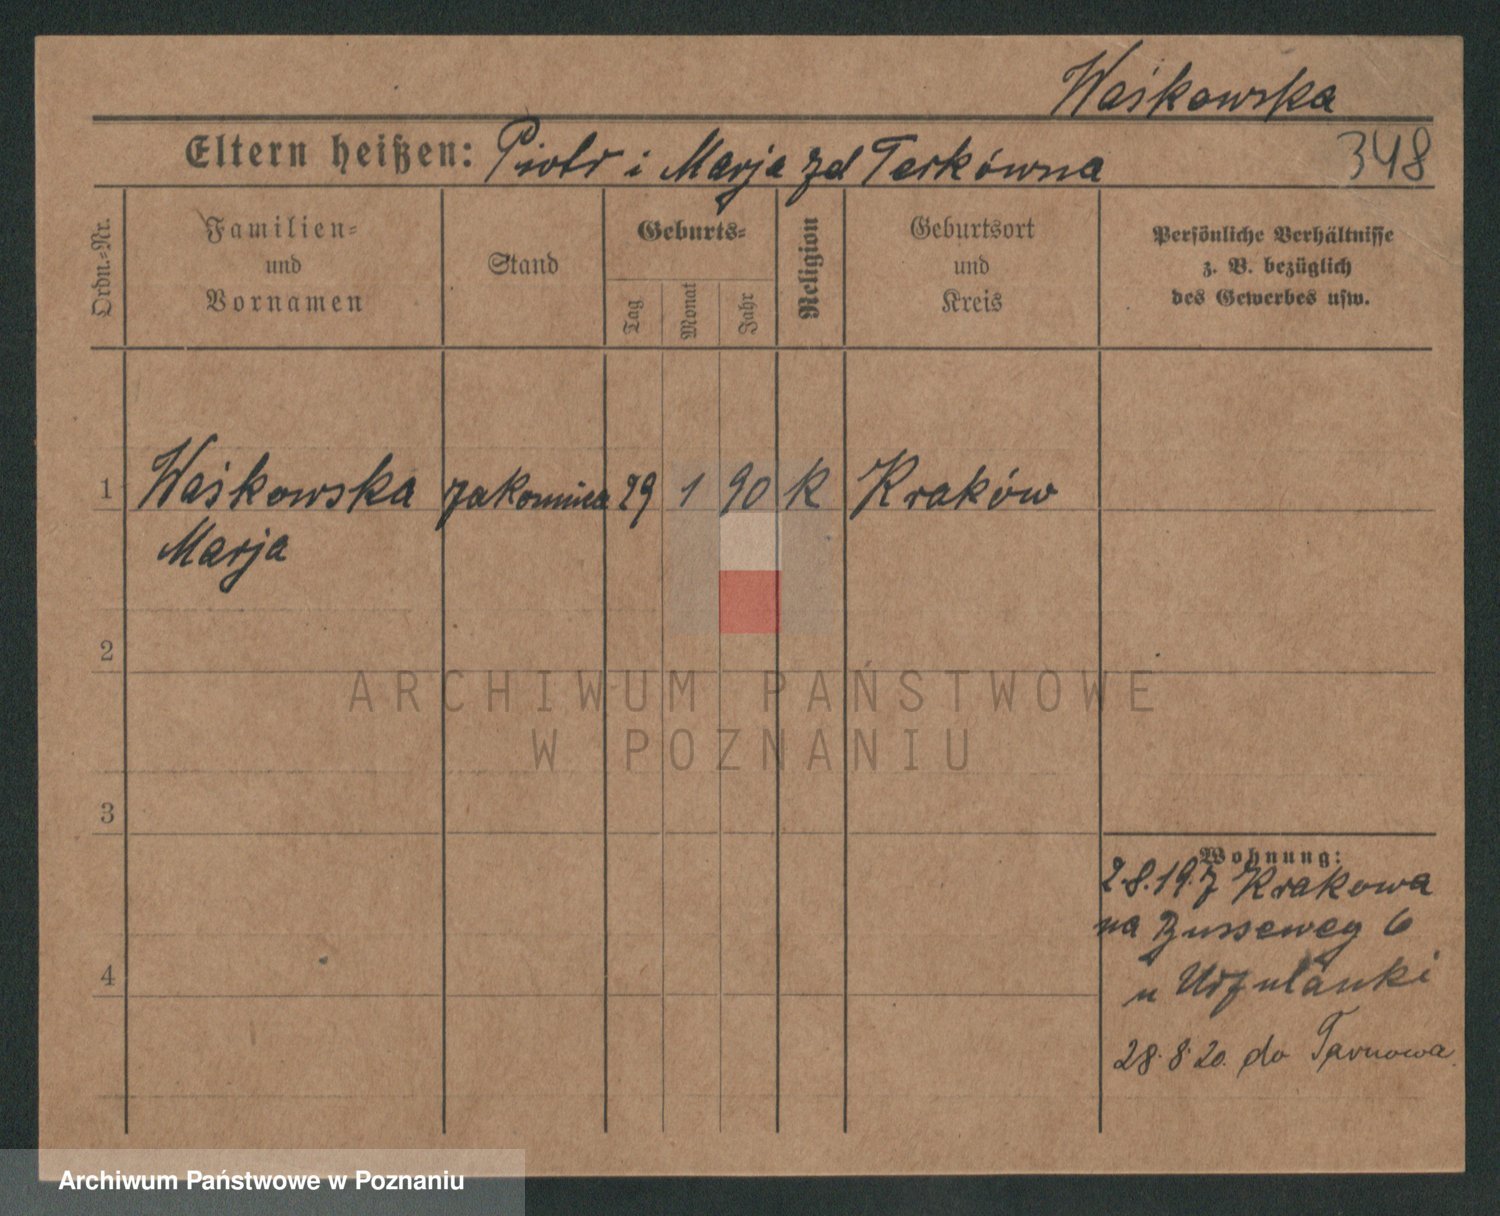 Waśkowska
Eltern heißen: Piotr i Marja zd Terkówna
348
Ordn.-Nr.
Familien-
und
Vornamen
Stand
Geburts-
Tag
Monat
Jahr
Religion
Geburtsort
und
Kreis
Persönliche Verhältnisse
z. B. bezüglich
des Gewerbes usw.
1 Waśkowska zakonnica 29 1 90 K Kraków
Marja
2
3
4
Wohnung:
2.8.19. z Krakowa
na Busseweg 6
u Urszulanki
28.8.20. do Tarnowa
ARCHIWUM PAŃSTWOWE
W POZNANIU
Archiwum Państwowe w Poznaniu